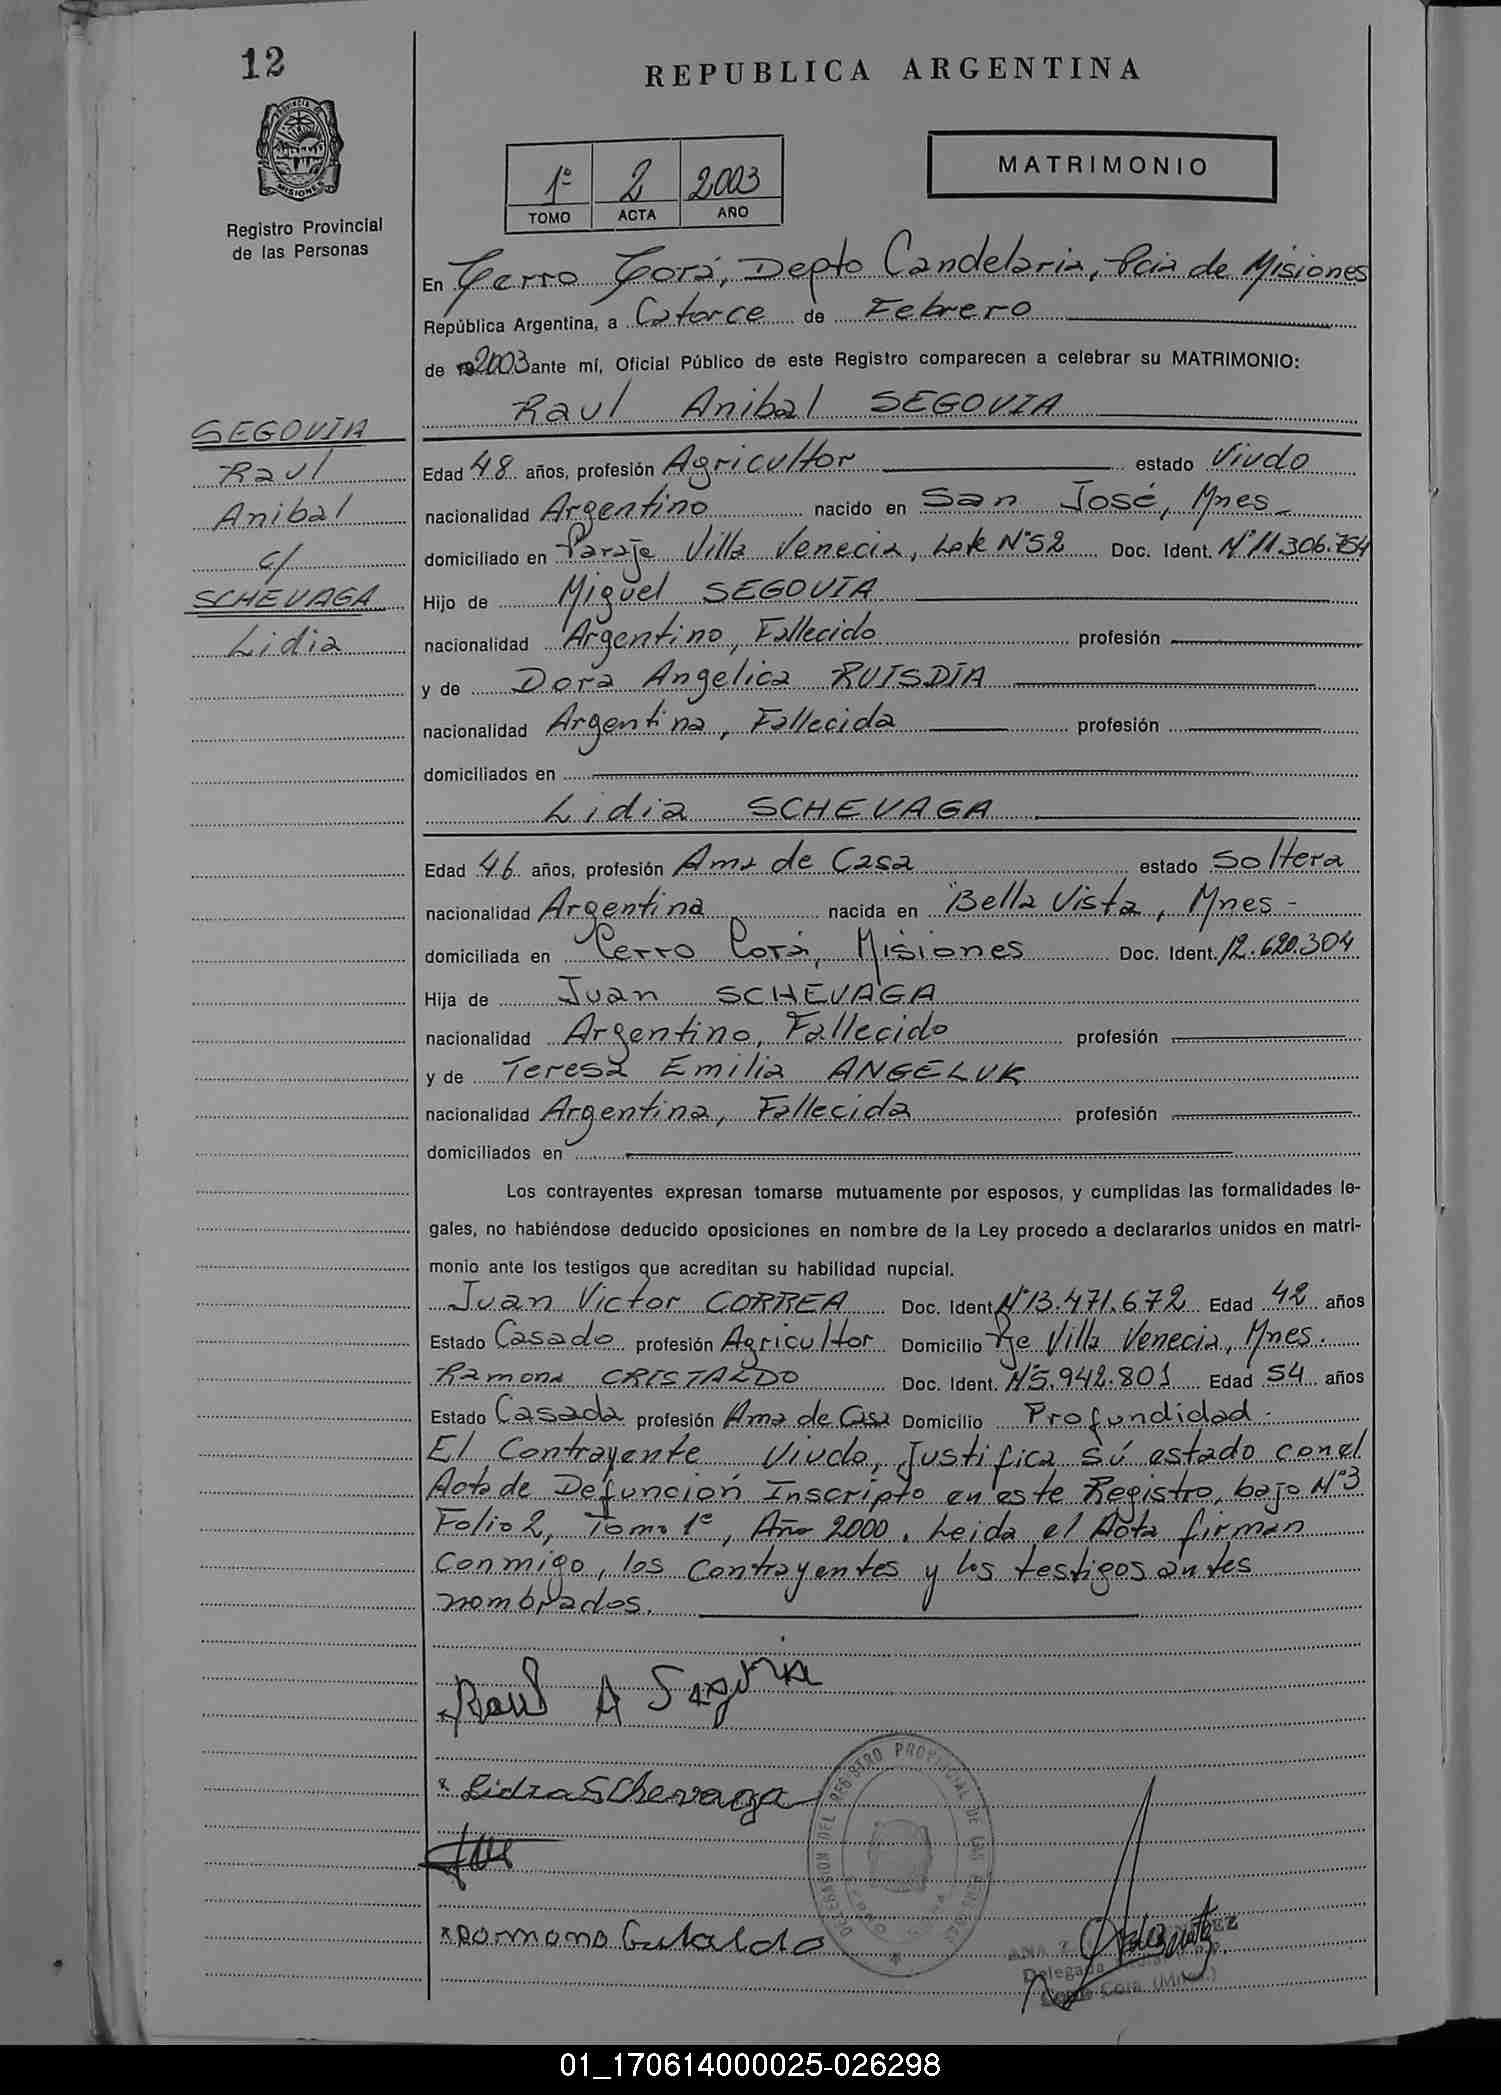 12
REPUBLICA ARGENTINA
MISIONES
Registro Provincial
de las Personas
1º 2 2003
TOMO ACTA AÑO
MATRIMONIO
En Cerro Corá, Depto Candelaria, Pcia de Misiones
República Argentina, a Catorce de Febrero
de 2003 ante mí, Oficial Público de este Registro comparecen a celebrar su MATRIMONIO:
Raul Anibal SEGOVIA
SEGOVIA
Raul
Anibal
c/
SCHEVAGA
Lidia
Edad 48 años, profesión Agricultor estado Viudo
nacionalidad Argentino nacido en San José, Mnes
domiciliado en Paraje Villa Venecia, Lote Nº52 Doc. Ident. Nº11.306.754
Hijo de Miguel SEGOVIA
nacionalidad Argentino, Fallecido profesión
y de Dora Angelica RUISDIA
nacionalidad Argentina, Fallecida profesión
domiciliados en
Lidia SCHEVAGA
Edad 46 años, profesión Ama de Casa estado Soltera
nacionalidad Argentina nacida en Bella Vista, Mnes -
domiciliada en Cerro Corá, Misiones Doc. Ident. 12.620.304
Hija de Juan SCHEVAGA
nacionalidad Argentino, Fallecido profesión
y de Teresa Emilia ANGELUK
nacionalidad Argentina, Fallecida profesión
domiciliados en
Los contrayentes expresan tomarse mutuamente por esposos, y cumplidas las formalidades le-
gales, no habiéndose deducido oposiciones en nombre de la Ley procedo a declararlos unidos en matri-
monio ante los testigos que acreditan su habilidad nupcial.
Juan Victor CORREA Doc. Ident. Nº13.471.672 Edad 42 años
Estado Casado profesión Agricultor Domicilio Pje Villa Venecia, Mnes.
Ramona CRISTALDO Doc. Ident. Nº5.942.801 Edad 54 años
Estado Casada profesión Ama de Casa Domicilio Profundidad.
El Contrayente Viudo, Justifica sú estado con el
Acta de Defunción Inscripto en este Registro, bajo Nº3
Folio 2, Tomo 1º, Año 2000. Leida el Acta firman
conmigo, los contrayentes y los testigos antes
nombrados.
Raul A Segovia
x Lidia SChevaga
DELEGACION DEL REGISTRO PROVINCIAL DE LAS PERSONAS
ANA
Delegada
Cerro Cora (Mnes.)
01_170614000025-026298